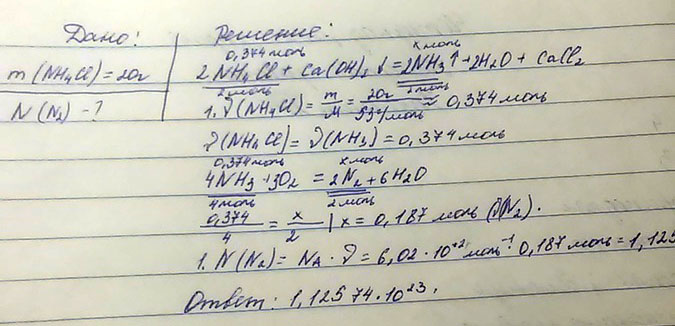 Дано: Решение:
0,374 моль x моль
m(NH4Cl)=20г 2NH4Cl + Ca(OH)2 ↓ = 2NH3↑ + 2H2O + CaCl2
2 моль 2 моль
N(N2) - ? 1. ν(NH4Cl) = m/M = 20г/53 г/моль ≈ 0,374 моль
ν(NH4Cl) = ν(NH3) = 0,374 моль
0,374 моль x моль
4NH3 + 3O2 = 2N2 + 6H2O
4 моль 2 моль
0,374/4 = x/2 | x = 0,187 моль (ν(N2)).
1. N(N2) = NA · ν = 6,02 · 10 моль⁻¹ · 0,187 моль = 1,125
Ответ: 1,12574 · 10²³.